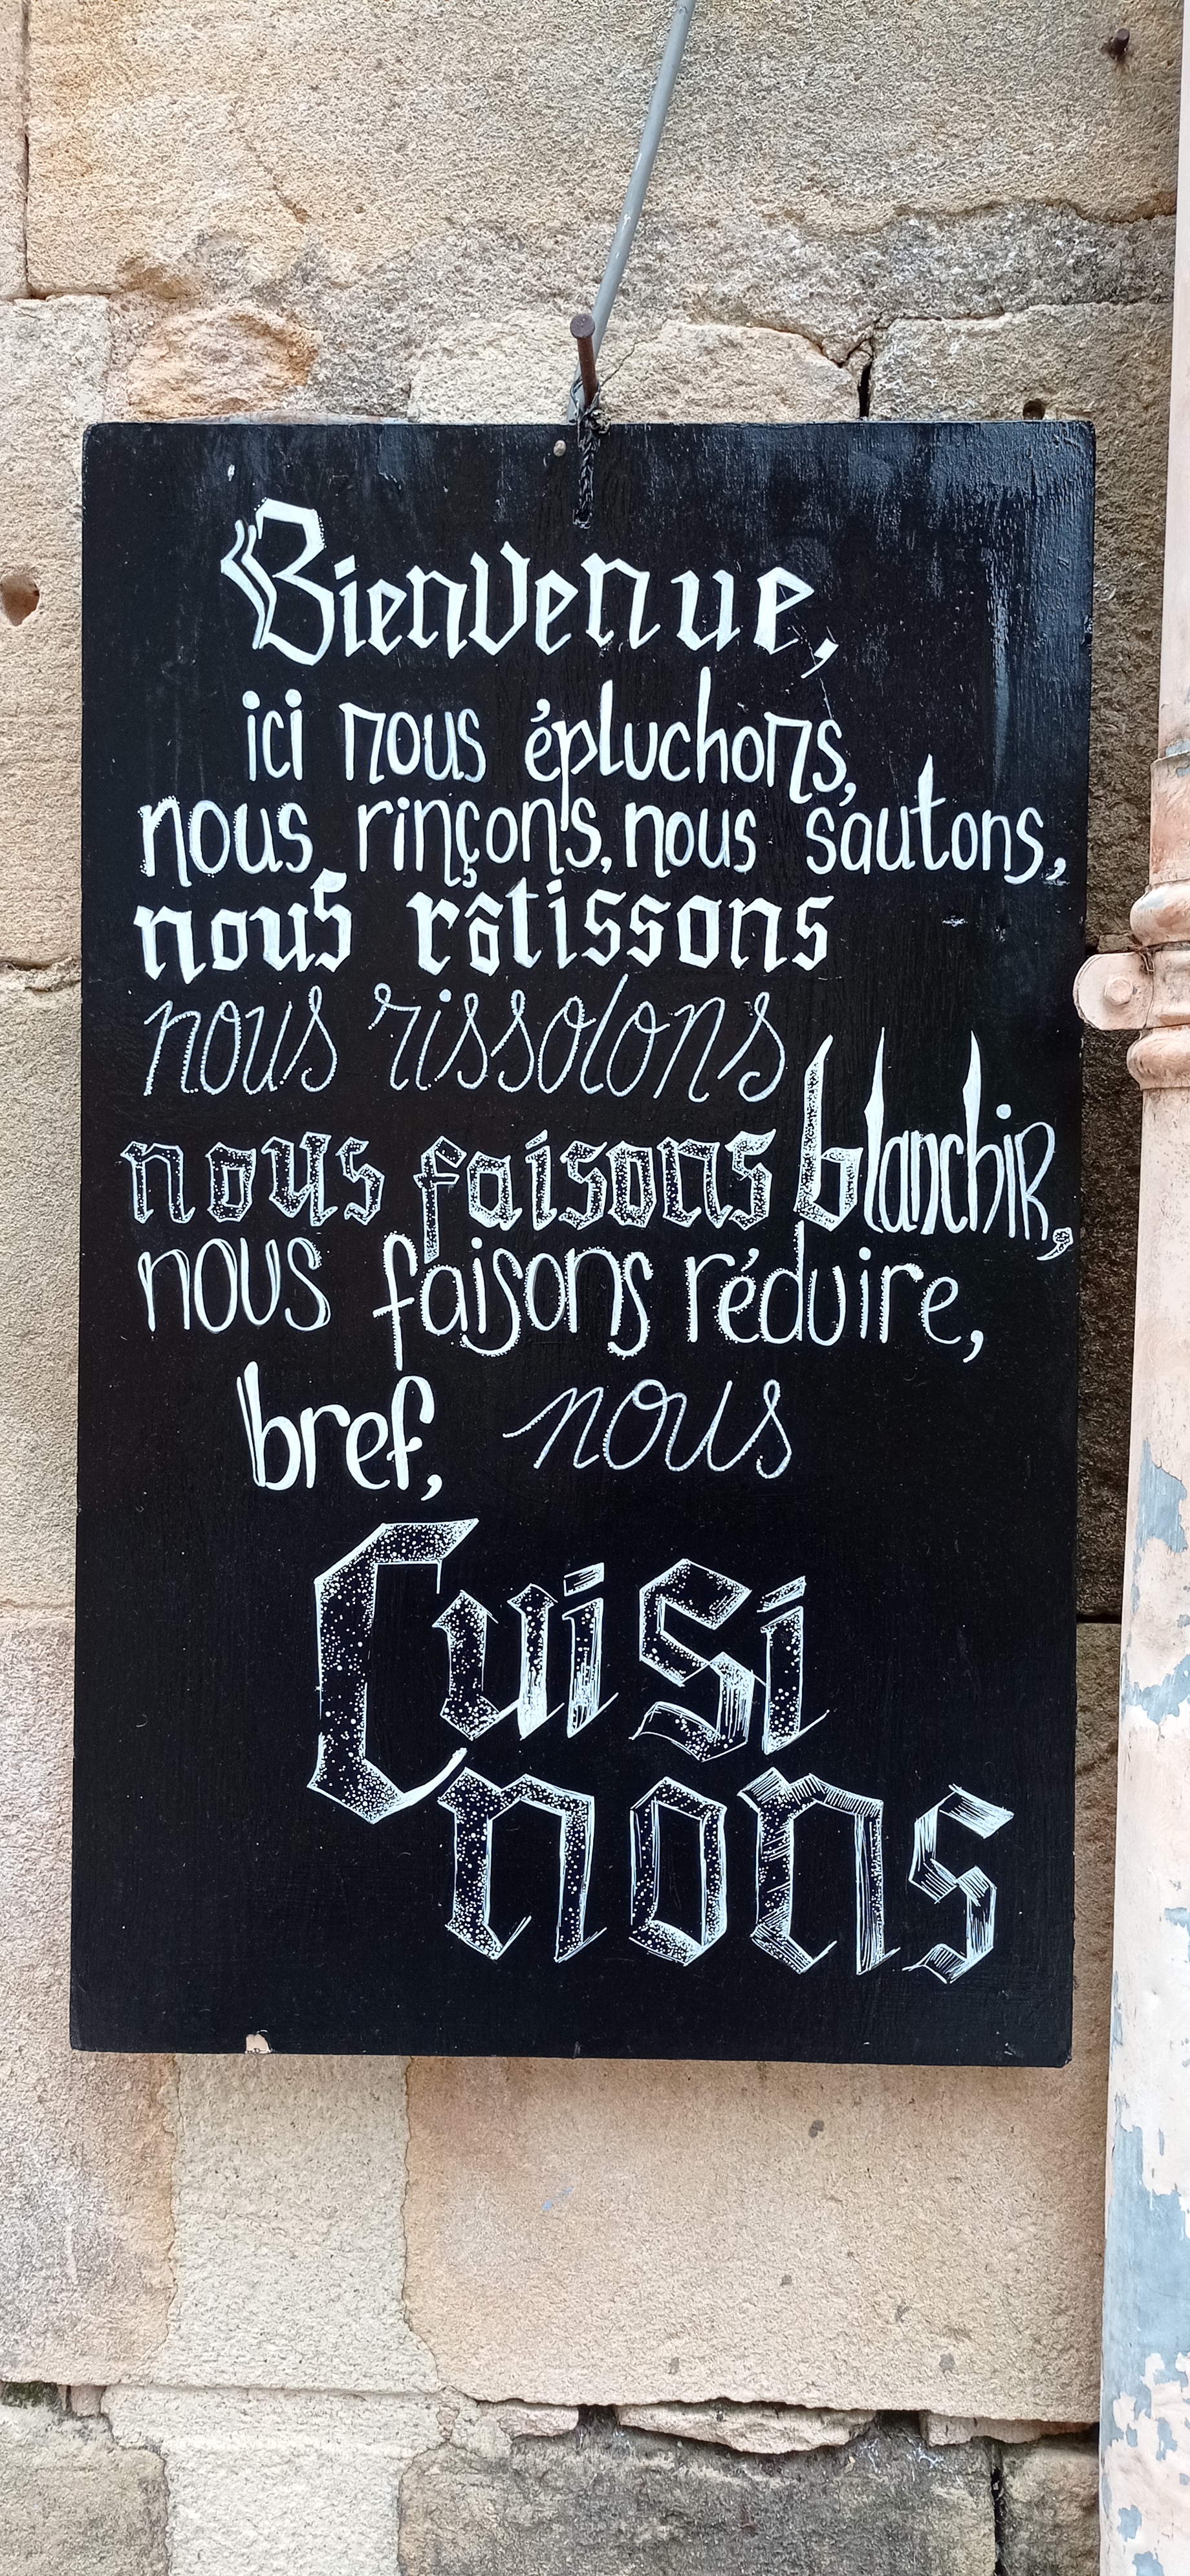 «Bienvenue,
ici nous épluchons,
nous rinçons, nous sautons,
nous râtissons
nous rissolons
nous faisons blanchir,
nous faisons réduire,
bref, nous
Cuisi
nons